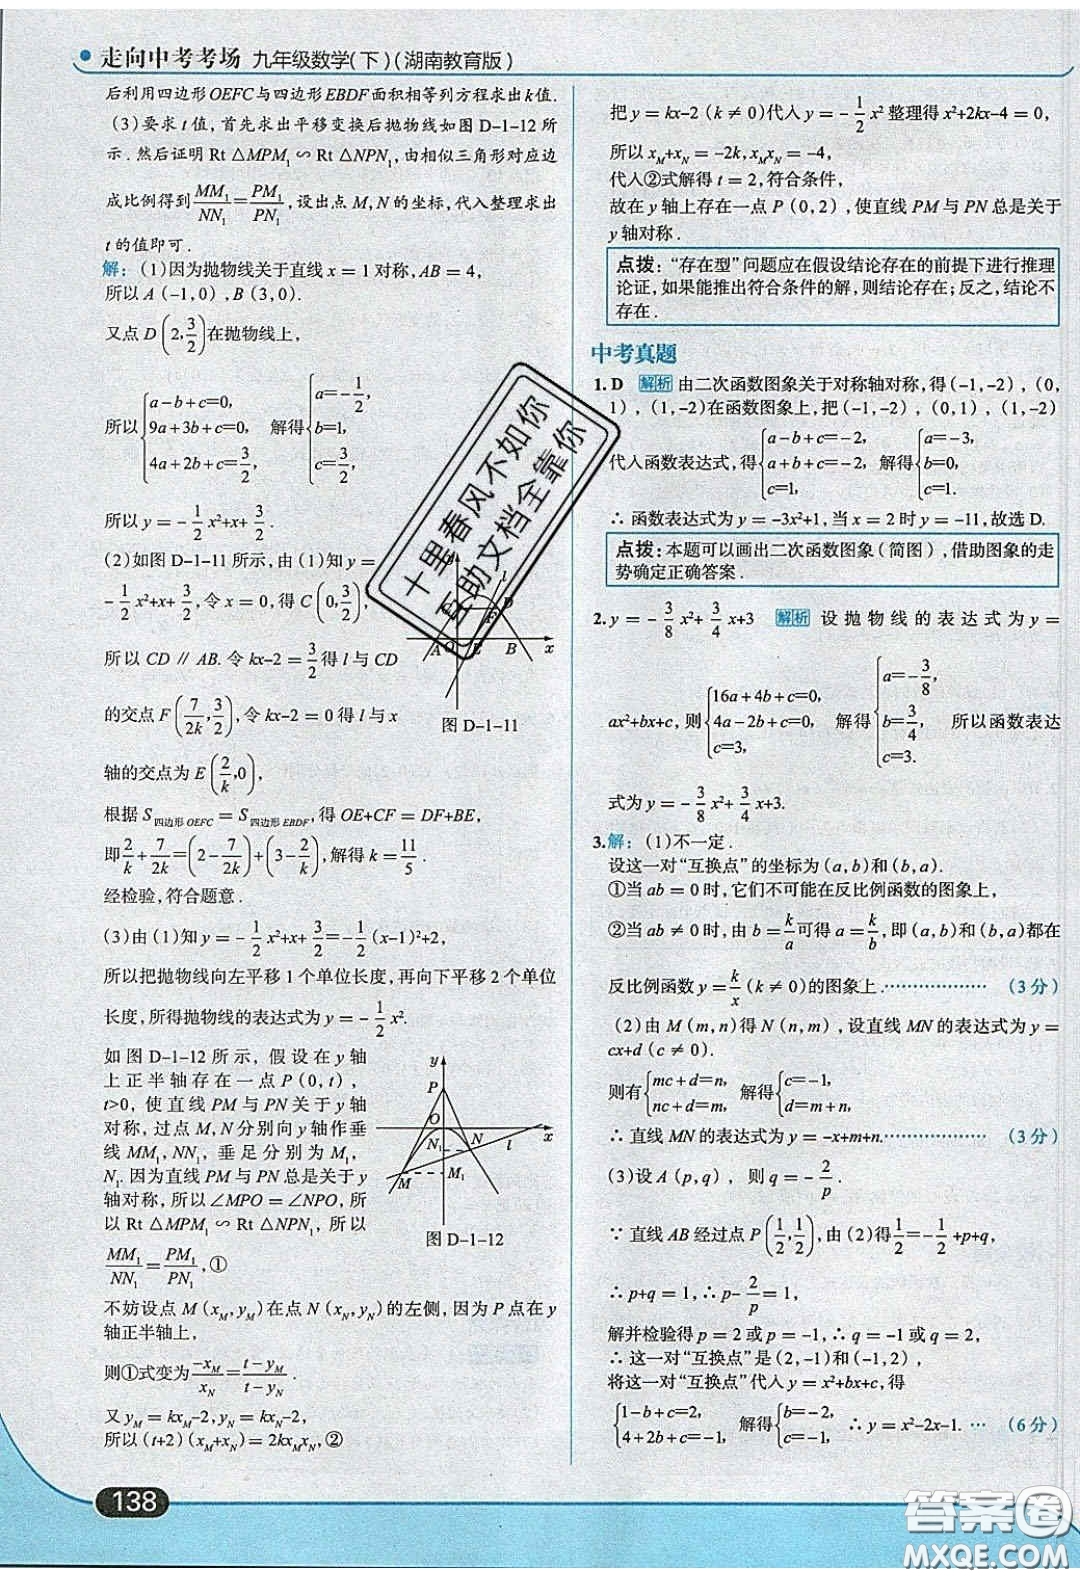 走向中考考场 九年级数学(下)(湖南教育版)
后利用四边形OEFC与四边形EBDF面积相等列方程求出k值.
(3)要求t值,首先求出平移变换后抛物线如图D-1-12所
示.然后证明Rt△MPM₁∽Rt△NPN₁,由相似三角形对应边
成比例得到MM₁/NN₁=PM₁/PN₁,设出点M,N的坐标,代入整理求出
t的值即可.
解:(1)因为抛物线关于直线x=1对称,AB=4,
所以A(-1,0),B(3,0).
又点D(2,3/2)在抛物线上,
所以{a-b+c=0, 9a+3b+c=0, 4a+2b+c=3/2, 解得{a=-1/2, b=1, c=3/2,
所以y=-1/2x²+x+3/2.
(2)如图D-1-11所示,由(1)知y=
-1/2x²+x+3/2,令x=0,得C(0,3/2),
所以CD∥AB.令kx-2=3/2得l与CD
的交点F(7/2k,3/2),令kx-2=0得l与x
轴的交点为E(2/k,0),
A O E B x
D
l
图D-1-11
根据S四边形OEFC=S四边形EBDF,得OE+CF=DF+BE,
即2/k+7/2k=(2-7/2k)+(3-2/k),解得k=11/5.
经检验,符合题意.
(3)由(1)知y=-1/2x²+x+3/2=-1/2(x-1)²+2,
所以把抛物线向左平移1个单位长度,再向下平移2个单位
长度,所得抛物线的表达式为y=-1/2x².
如图D-1-12所示,假设在y轴
上正半轴存在一点P(0,t),
t>0,使直线PM与PN关于y轴
对称,过点M,N分别向y轴作垂
线MM₁,NN₁,垂足分别为M₁,
N₁.因为直线PM与PN总是关于y
轴对称,所以∠MPO=∠NPO,所
以Rt△MPM₁∽Rt△NPN₁,所以
MM₁/NN₁=PM₁/PN₁,①
y
P
O x
N₁ N l
M M₁
图D-1-12
不妨设点M(xM,yM)在点N(xN,yN)的左侧,因为P点在y
轴正半轴上,
则①式变为-xM/xN=t-yM/t-yN.
又yM=kxM-2,yN=kxN-2,
所以(t+2)(xM+xN)=2kxMxN,②
把y=kx-2(k≠0)代入y=-1/2x²整理得x²+2kx-4=0,
所以xM+xN=-2k,xMxN=-4,
代入②式解得t=2,符合条件,
故在y轴上存在一点P(0,2),使直线PM与PN总是关于
y轴对称.
点拨:“存在型”问题应在假设结论存在的前提下进行推理
论证,如果能推出符合条件的解,则结论存在;反之,结论不
存在.
中考真题
1.D 解析 由二次函数图象关于对称轴对称,得(-1,-2),(0,
1),(1,-2)在函数图象上,把(-1,-2),(0,1),(1,-2)
代入函数表达式,得{a-b+c=-2, a+b+c=-2, c=1, 解得{a=-3, b=0, c=1,
∴函数表达式为y=-3x²+1,当x=2时y=-11,故选D.
点拨:本题可以画出二次函数图象(简图),借助图象的走
势确定正确答案.
2.y=-3/8x²+3/4x+3 解析 设抛物线的表达式为y=
ax²+bx+c,则{16a+4b+c=0, 4a-2b+c=0, c=3, 解得{a=-3/8, b=3/4, c=3. 所以函数表达
式为y=-3/8x²+3/4x+3.
3.解:(1)不一定.
设这一对“互换点”的坐标为(a,b)和(b,a).
①当ab=0时,它们不可能在反比例函数的图象上,
②当ab≠0时,由b=k/a可得a=k/b,即(a,b)和(b,a)都在
反比例函数y=k/x(k≠0)的图象上.………………(3分)
(2)由M(m,n)得N(n,m),设直线MN的表达式为y=
cx+d(c≠0).
则有{mc+d=n, nc+d=m, 解得{c=-1, d=m+n,
∴直线MN的表达式为y=-x+m+n.………………(3分)
(3)设A(p,q),则q=-2/p.
∵直线AB经过点P(1/2,1/2),由(2)得1/2=-1/2+p+q,
∴p+q=1,∴p-2/p=1,
解并检验得p=2或p=-1,∴q=-1或q=2,
∴这一对“互换点”是(2,-1)和(-1,2),
将这一对“互换点”代入y=x²+bx+c,得
{1-b+c=2, 4+2b+c=-1, 解得{b=-2, c=-1, ∴y=x²-2x-1. …(6分)
十里春风不如你
互助文档全靠你
138
答案圈
MXQE.COM